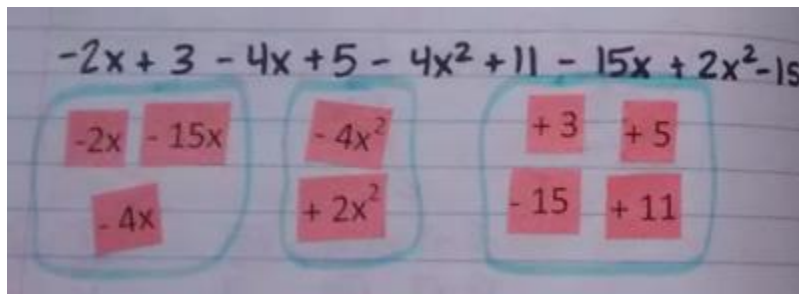 -2x + 3 - 4x + 5 - 4x² + 11 - 15x + 2x² - 15
-2x - 15x - 4x² + 3 + 5
- 4x + 2x² - 15 + 11